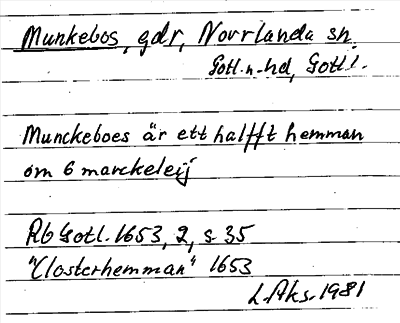 Munkebos, gdr, Norrlanda sn.
Gotl. n. hd, Gotl l.
Munckeboes är ett halfft hemman
om 6 marckeleij
Rb Gotl. 1653, 2, s 35
"Closterhemman" 1653
L. Aks. 1981